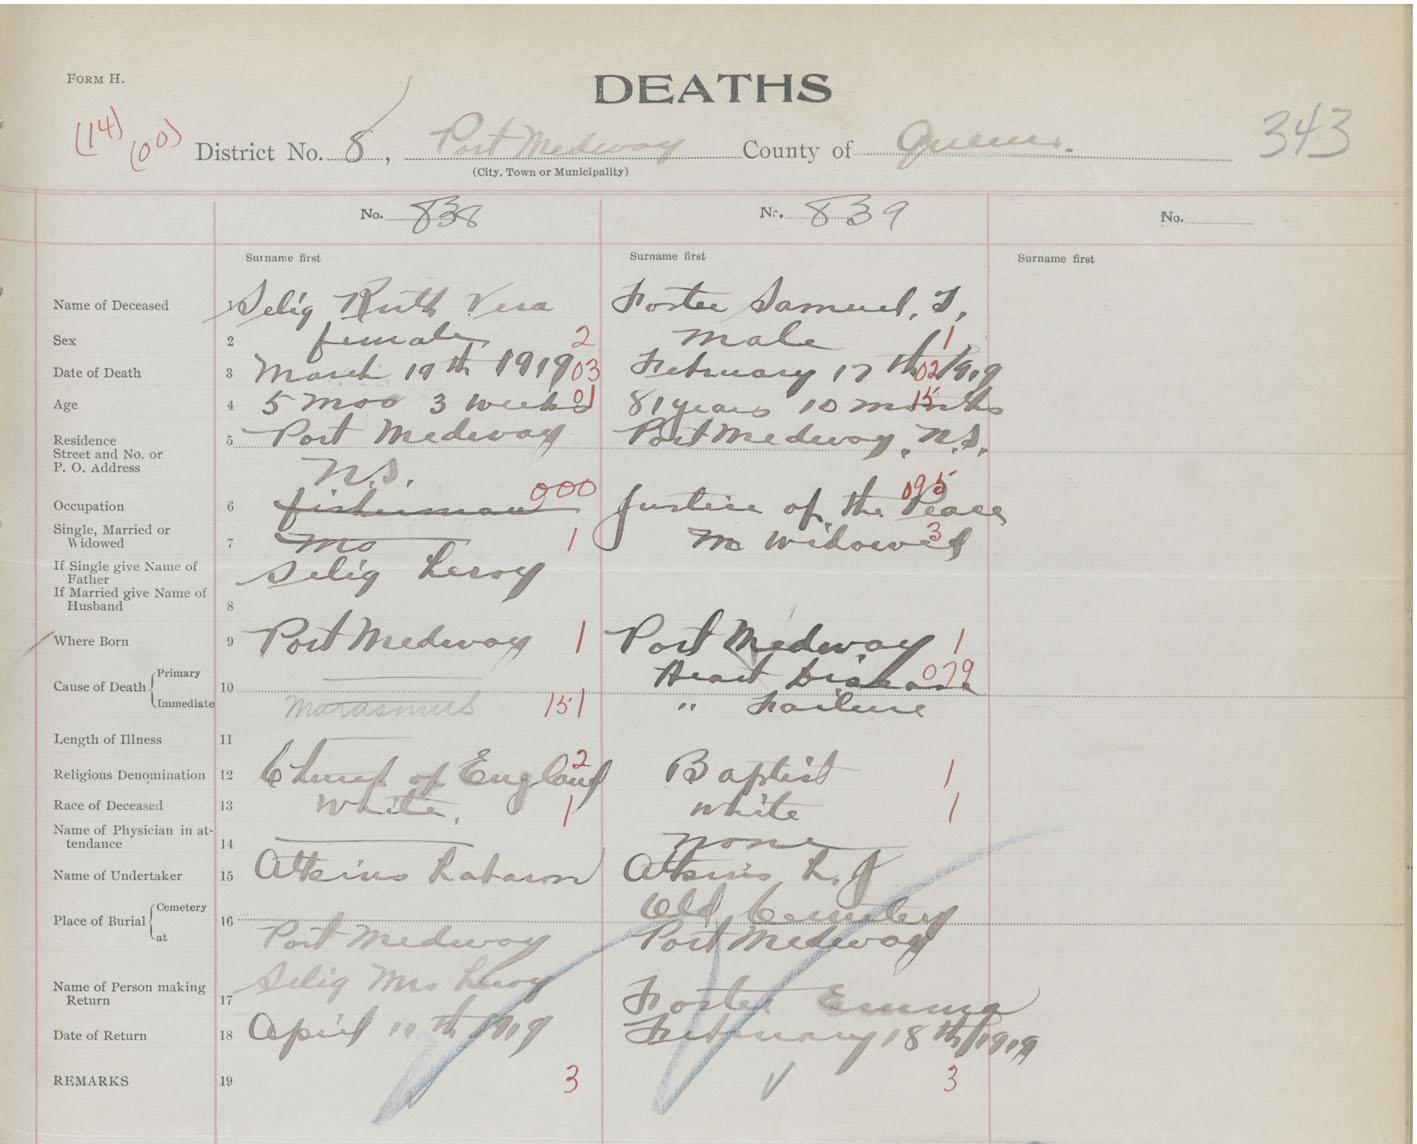 FORM H.
DEATHS
(14) (00)
District No. 8, Port Medway County of Queens. 343
(City, Town or Municipality)
No. 838 No. 839 No.
Surname first Surname first Surname first
Name of Deceased 1 Selig Ruth Vera Foster Samuel. T.
Sex 2 female 2 male 1
Date of Death 3 March 19th 1919 03 February 17th 02 1919
Age 4 5 mos 3 weeks 01 81 years 10 months 15
Residence 5 Port Medway Port Medway, N.S.
Street and No. or
P. O. Address N.S.
Occupation 6 fisherman 000 Justice of the Peace 095
Single, Married or
Widowed 7 Mo 1 M Widowed 3
If Single give Name of
Father Selig Leroy
If Married give Name of
Husband 8
Where Born 9 Port Medway 1 Port Medway 1
Cause of Death Primary 10 Heart Disease 079
Immediate Marasmus 151 " Failure
Length of Illness 11
Religious Denomination 12 Church of England 2 Baptist 1
Race of Deceased 13 White, 1 White 1
Name of Physician in at-
tendance 14 none
Name of Undertaker 15 Atkins Labaron Atkins L. J
Place of Burial Cemetery 16 Old Cemetery
at Port Medway Port Medway
Name of Person making
Return 17 Selig Mrs Leroy Foster Emma
Date of Return 18 April 11th 1919 February 18th 1919
REMARKS 19 3 3